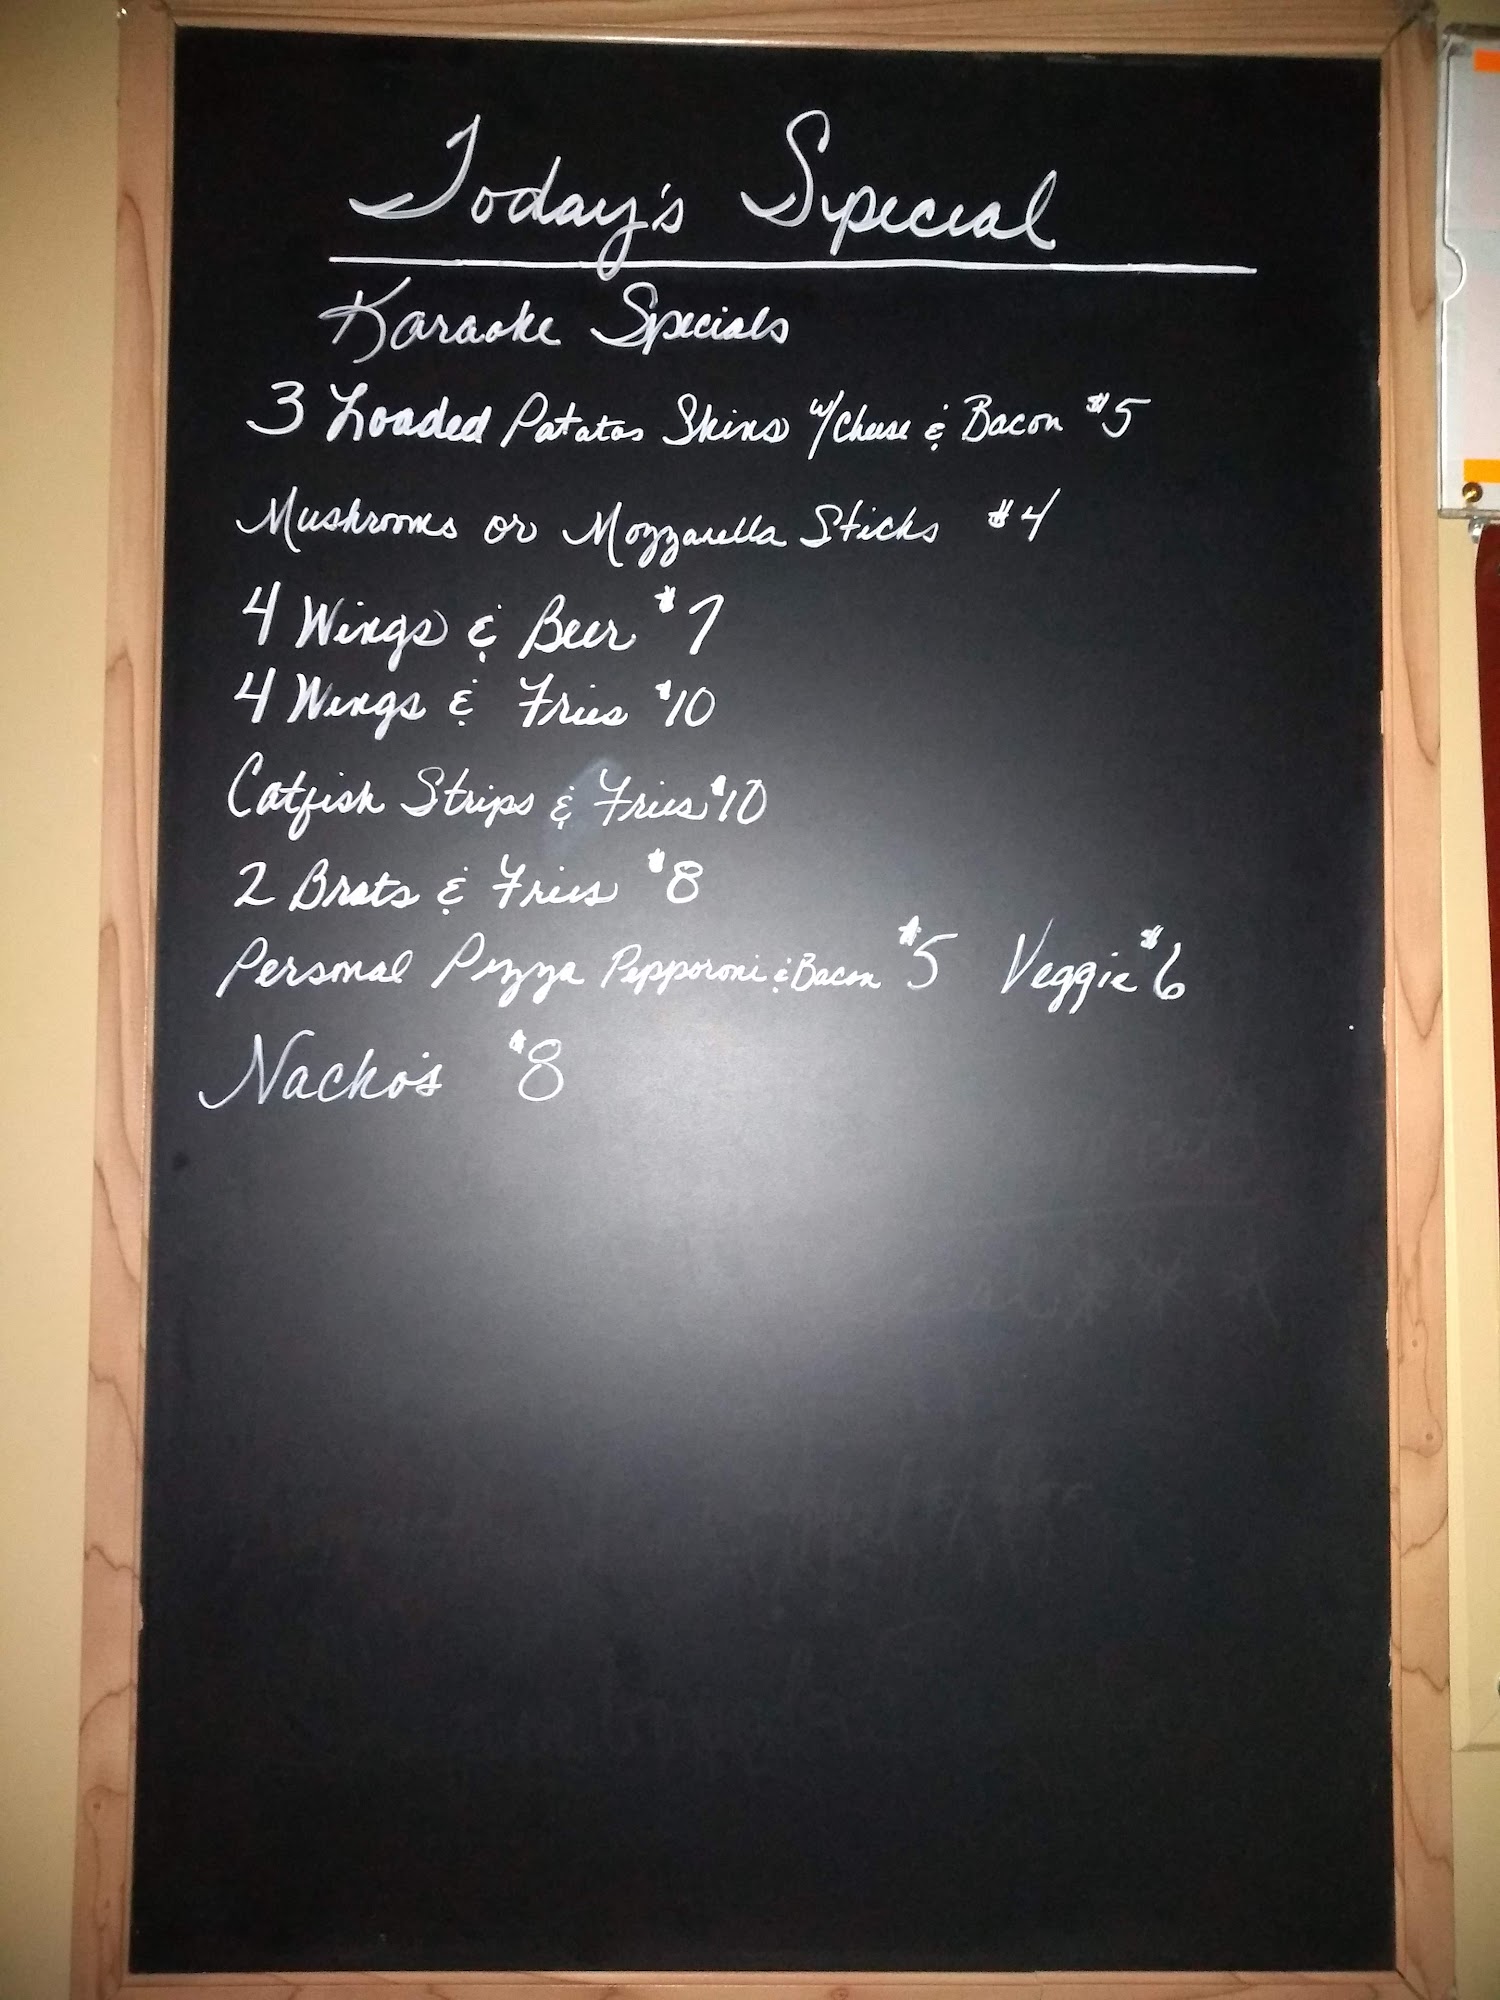 Today's Special
Karaoke Specials
3 Loaded Patatos Skins w/ Cheese & Bacon $5
Mushrooms or Mozzarella Sticks $4
4 Wings & Beer $7
4 Wings & Fries $10
Catfish Strips & Fries $10
2 Brats & Fries $8
Personal Pizza Pepporoni & Bacon $5 Veggie $6
Nacho's $8